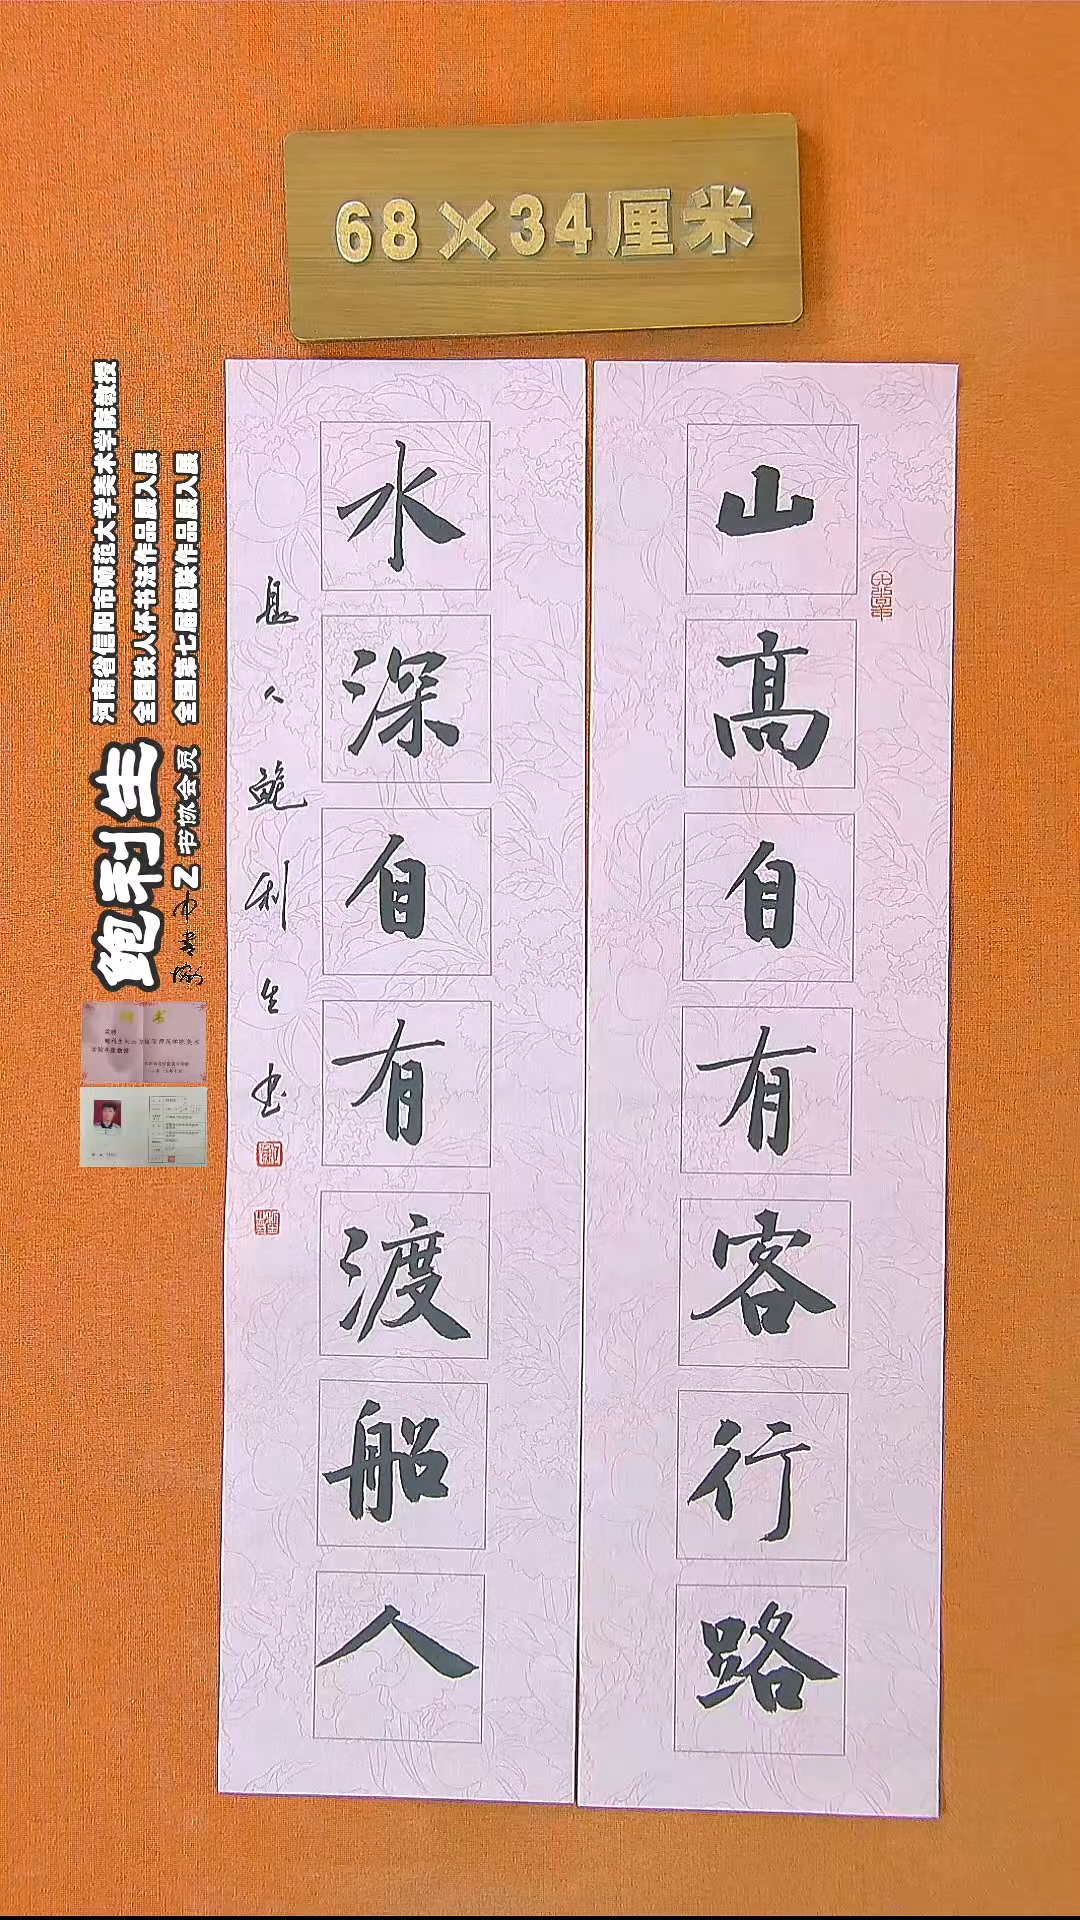 68×34厘米
山高自有客行路
水深自有渡船人
息人鲍利生书
河南省信阳市师范大学美术学院教授
全国铁人杯书法作品展入展
全国第七届楹联作品展入展
鲍利生
书协会员